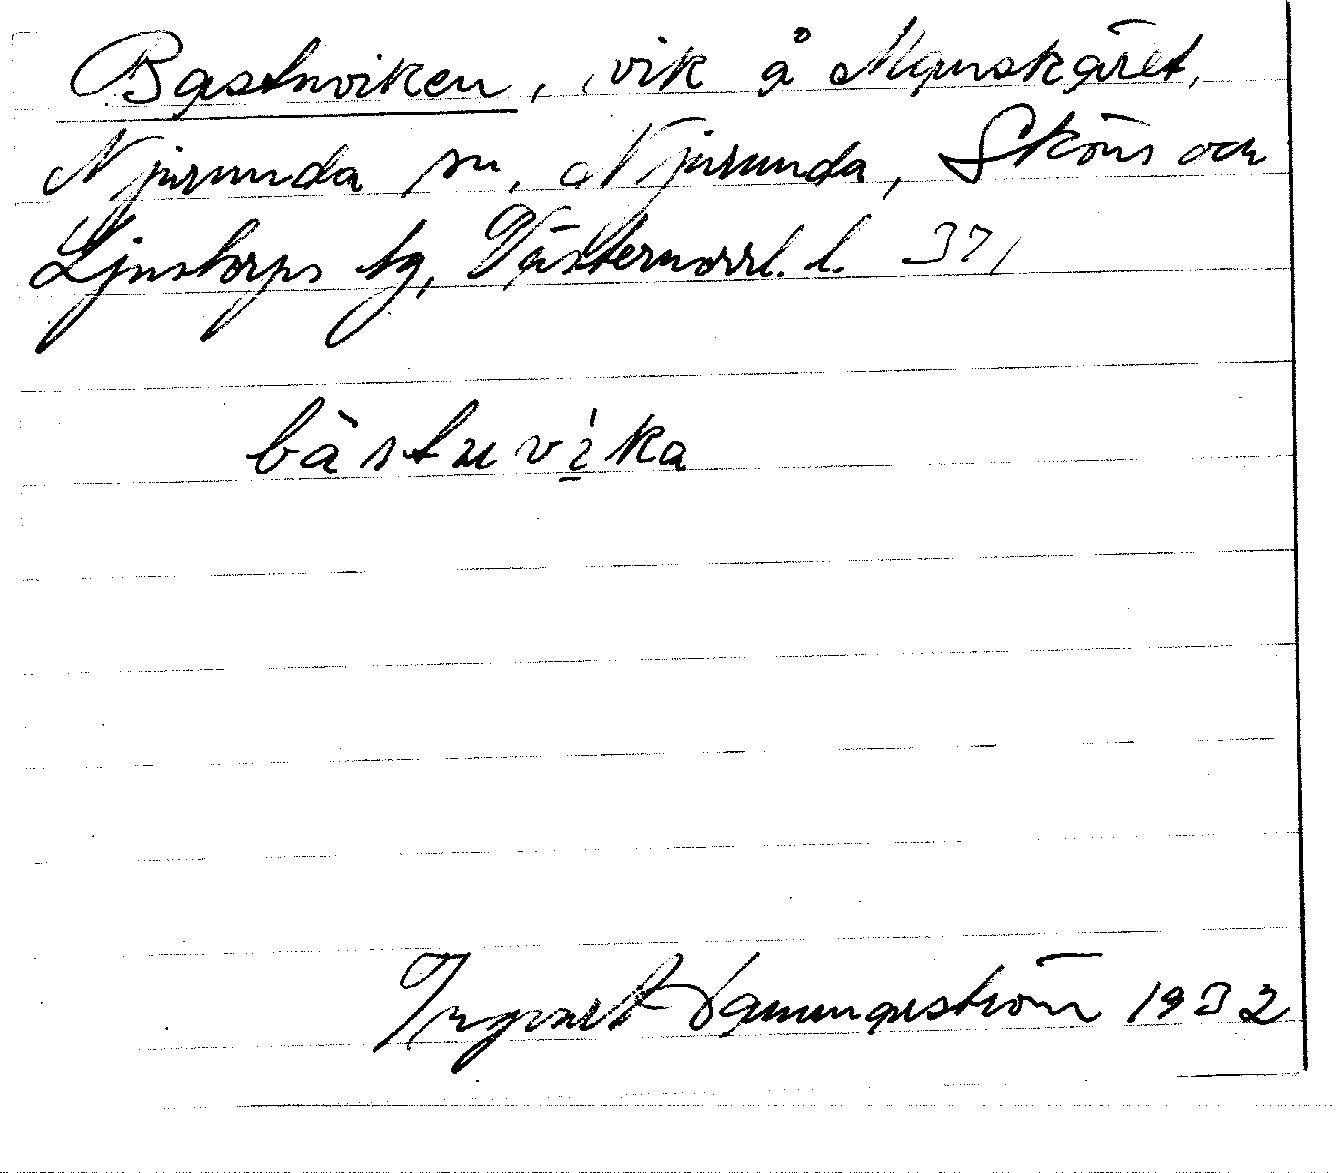 Bastuviken, vik å Manskäret,
Njurunda sn, Njurunda, Sköns och
Ljustorps tg, Västernorrl. l. 371
bàstuvìka
Ingvart 1932